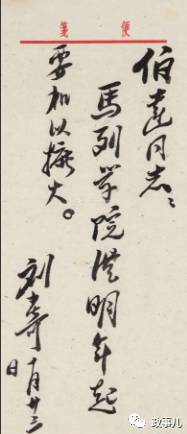 便箋
伯達同志：
馬列学院從明年起
要加以擴大。
刘少奇 十月廿三
日
政事儿